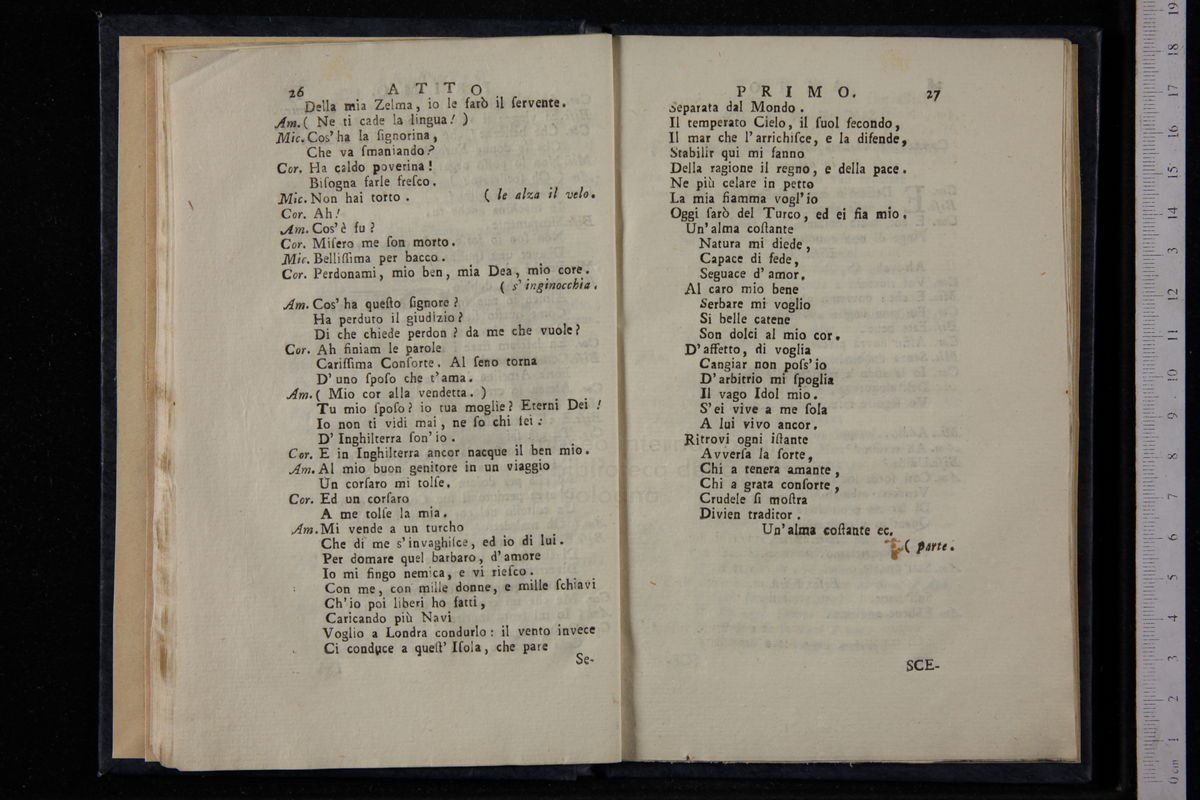 26 A T T O
Della mia Zelma, io le farò il ſervente.
Am. ( Ne ti cade la lingua! )
Mic. Cos' ha la ſignorina,
Che va ſmaniando?
Cor. Ha caldo poverina!
Biſogna farle freſco.
Mic. Non hai torto. ( le alza il velo.
Cor. Ah!
Am. Cos' è ſu?
Cor. Miſero me ſon morto.
Mic. Belliſſima per bacco.
Cor. Perdonami, mio ben, mia Dea, mio core.
( s' inginocchia.
Am. Cos' ha queſto ſignore?
Ha perduto il giudizio?
Di che chiede perdon? da me che vuole?
Cor. Ah finiam le parole
Cariſſima Conſorte. Al ſeno torna
D' uno ſpoſo che t' ama.
Am. ( Mio cor alla vendetta. )
Tu mio ſpoſo? io tua moglie? Eterni Dei!
Io non ti vidi mai, ne ſo chi ſei:
D' Inghilterra ſon' io.
Cor. E in Inghilterra ancor nacque il ben mio.
Am. Al mio buon genitore in un viaggio
Un corſaro mi tolſe.
Cor. Ed un corſaro
A me tolſe la mia.
Am. Mi vende a un turcho
Che di me s' invaghiſce, ed io di lui.
Per domare quel barbaro, d' amore
Io mi fingo nemica, e vi rieſco.
Con me, con mille donne, e mille ſchiavi
Ch' io poi liberi ho fatti,
Caricando più Navi
Voglio a Londra condurlo: il vento invece
Ci conduce a queſt' Iſola, che pare
Se-
P R I M O. 27
Separata dal Mondo.
Il temperato Cielo, il ſuol fecondo,
Il mar che l' arrichiſce, e la difende,
Stabilir qui mi fanno
Della ragione il regno, e della pace.
Ne più celare in petto
La mia fiamma vogl' io
Oggi ſarò del Turco, ed ei fia mio.
Un' alma coſtante
Natura mi diede,
Capace di fede,
Seguace d' amor.
Al caro mio bene
Serbare mi voglio
Si belle catene
Son dolci al mio cor.
D' affetto, di voglia
Cangiar non poſs' io
D' arbitrio mi ſpoglia
Il vago Idol mio.
S' ei vive a me ſola
A lui vivo ancor.
Ritrovi ogni iſtante
Avverſa la ſorte,
Chi a tenera amante,
Chi a grata conſorte,
Crudele ſi moſtra
Divien traditor.
Un' alma coſtante ec.
( parte.
SCE-